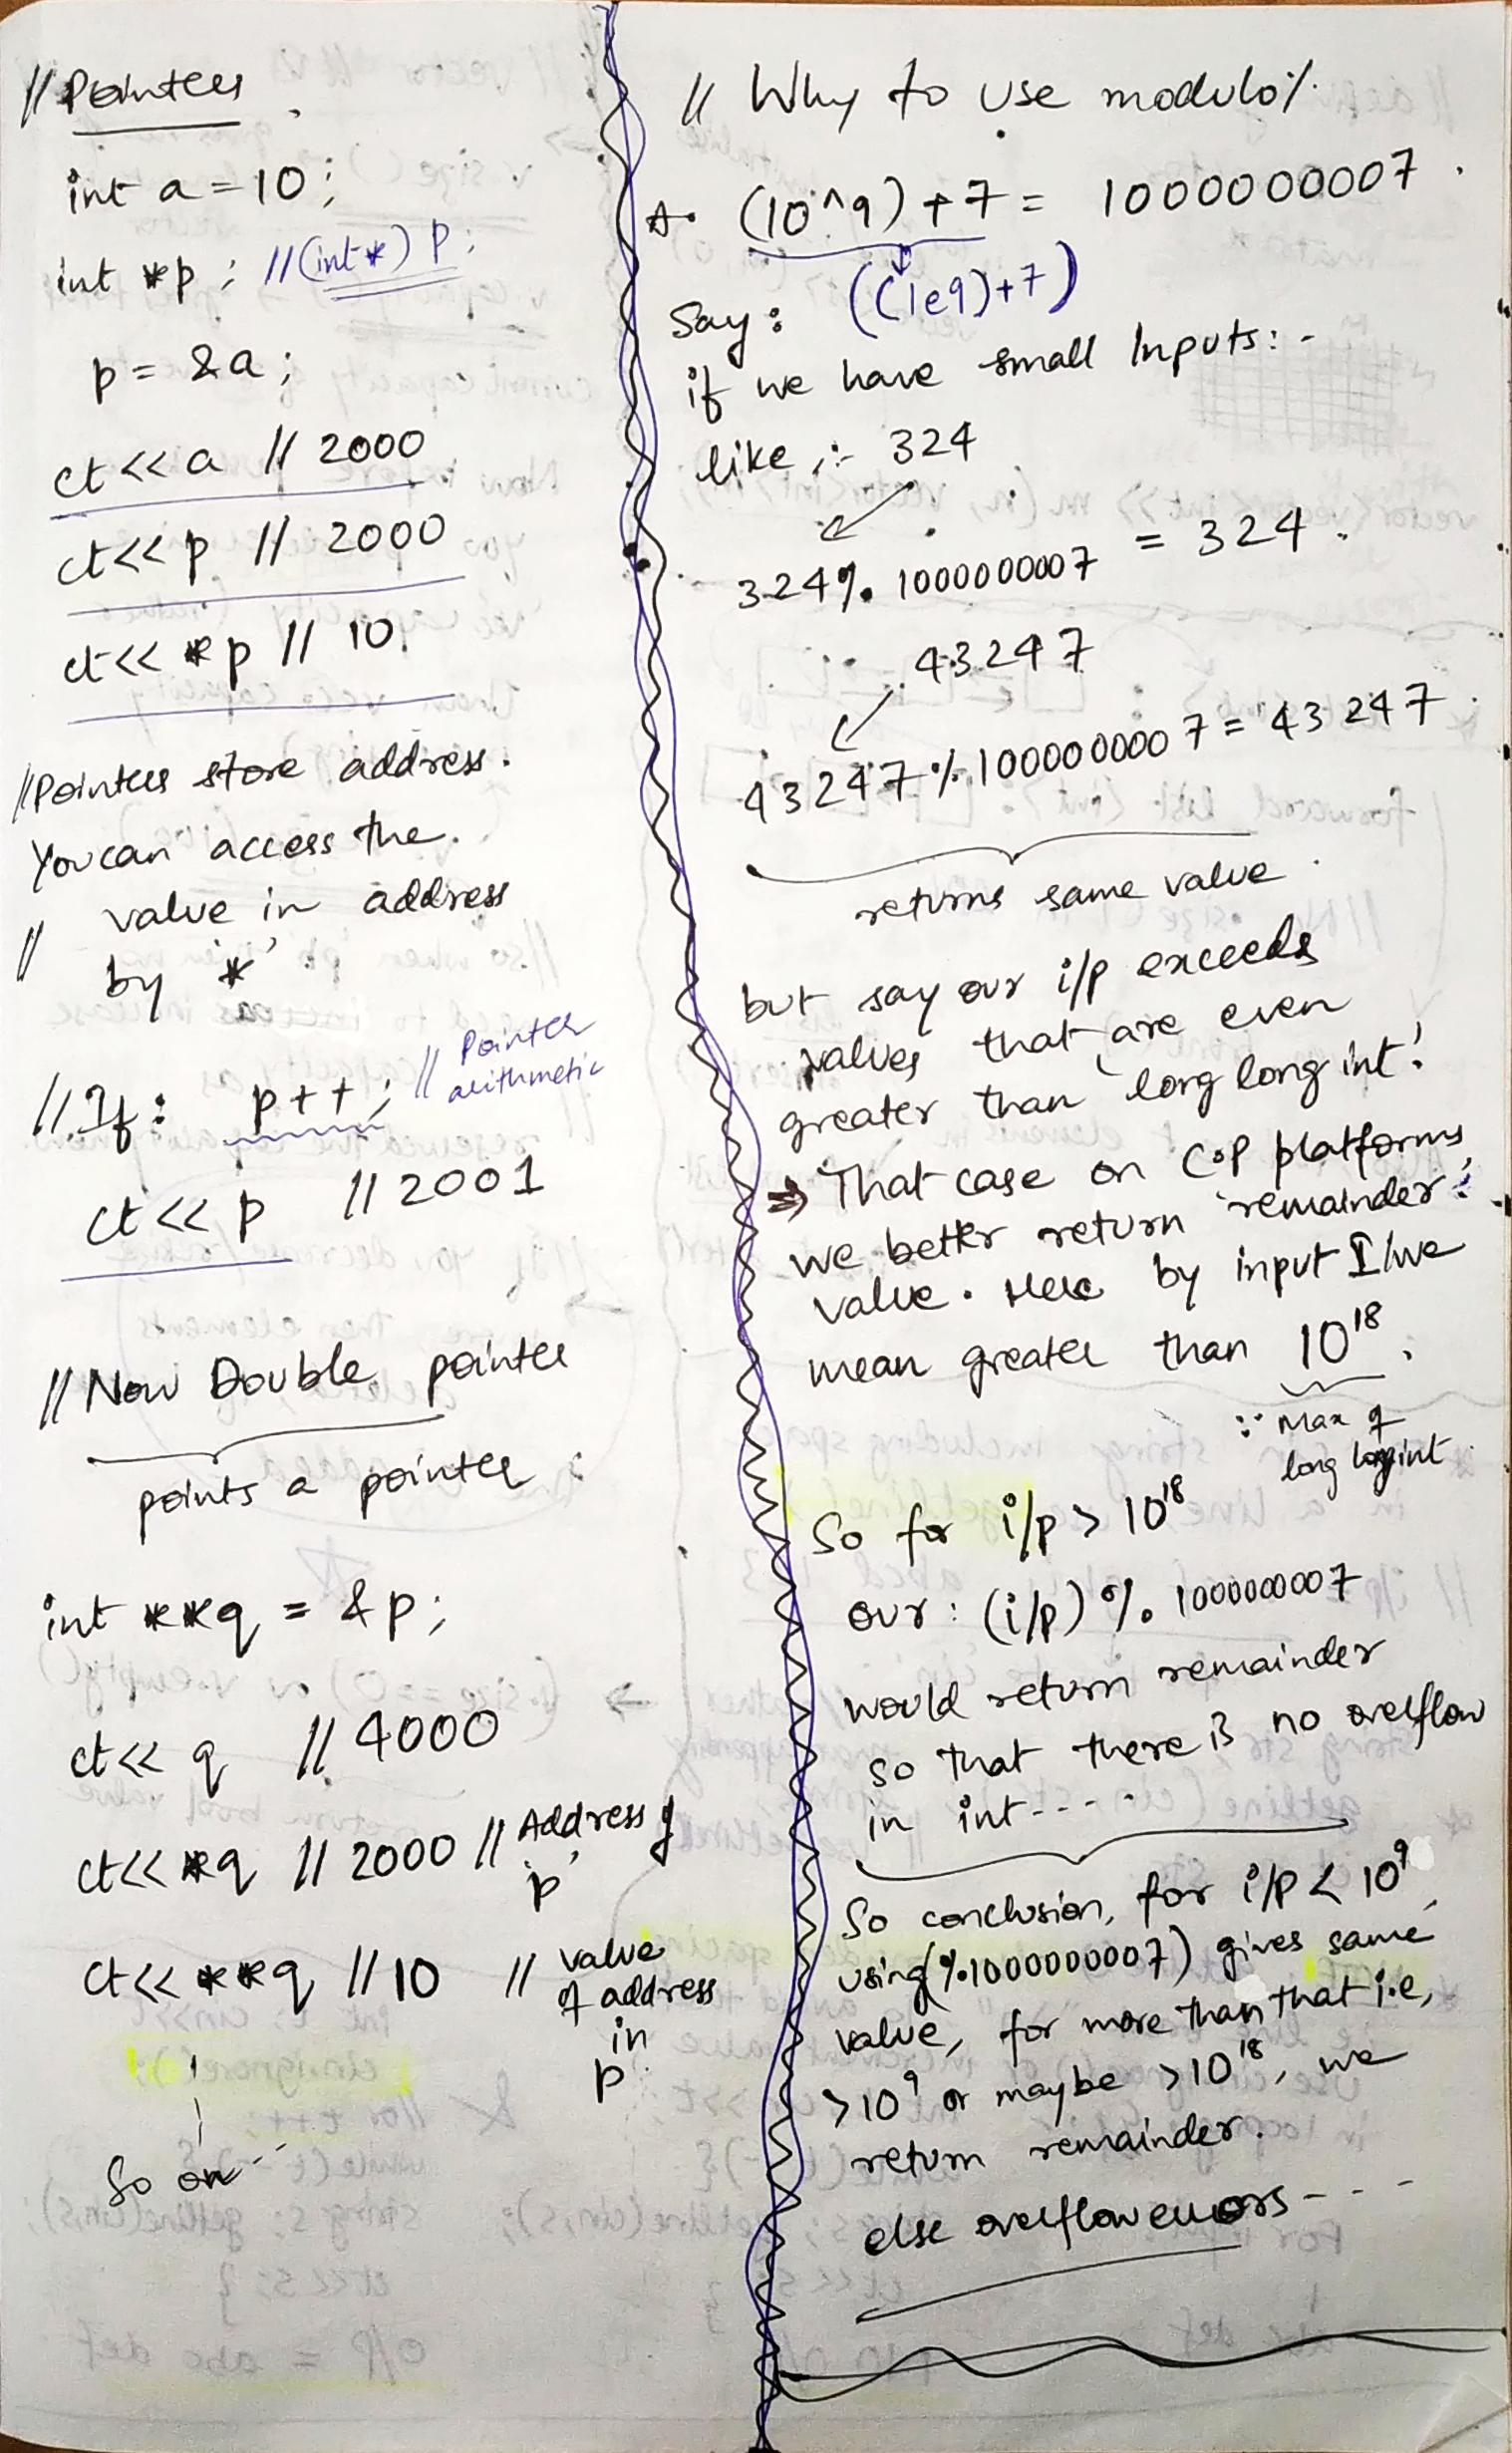 // Pointers
int a = 10;
int *p ; //(int*) p;
p = &a;
ct << a // 2000
ct << p // 2000
ct << *p // 10
// Pointers store address.
You can access the
// value in address
by '*'
// If: p++; // Pointer
arithmetic
ct << p // 2001
// Now Double pointer
points a pointer
int **q = &p;
ct << q // 4000
ct << *q // 2000 // Address of
'p'
ct << **q // 10 // value
of address
in
p
So on --
// Why to use modulo %
(10^9) + 7 = 1000000007.
((1e9)+7)
Say:
if we have small Inputs: -
like :- 324
324 % 1000000007 = 324.
43247
43247 % 1000000007 = 43247.
returns same value.
but say our i/p exceeds
values that are even
greater than 'long long int'.
⇒ That case on C.P platforms,
we better return 'remainder'
value. Here by input I/we
mean greater than 10^18.
∵ Max of
long long int
So for i/p > 10^18
our : (i/p) % 1000000007
would return remainder
so that there is no overflow
in int-----
So conclusion, for i/p < 10^9,
using (%1000000007) gives same
value, for more than that i.e,
>10^9 or maybe >10^18, we
return remainder.
else overflow errors----